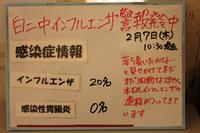 白二中インフルエンザ警報発令中
2月7日(木)
10:30現在
感染症情報
インフルエンザ 20%
感染性胃腸炎 0%
落ち着いたかな…
と見せかけてまだ
まだ油断なりません。
本日もインフルエンザの
連絡が入ってきて
います。